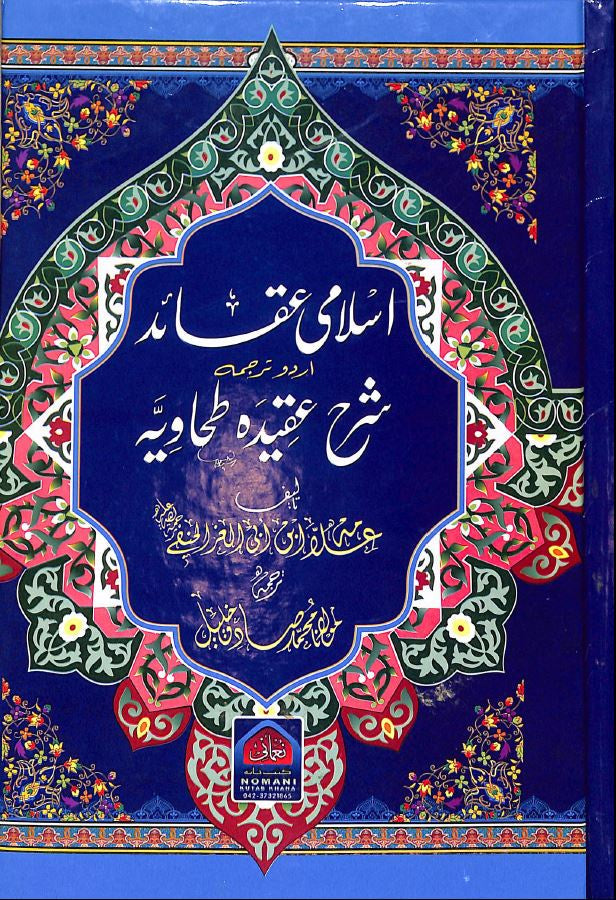 اسلامی عقائد
اردو ترجمہ
شرح عقیدہ طحاویہ
تالیف
علامہ ابن ابی العز الحنفی
ترجمہ
مولانا محمد صادق خلیل
نعمانی
کتب خانہ
NOMANI
KUTAB KHANA
042-37321865